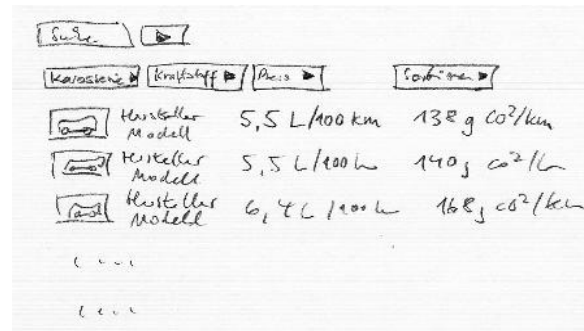 Suche
Karosserie Kraftstoff Preis Sortieren
Hersteller Modell 5,5 L/100 km 138 g CO²/km
Hersteller Modell 5,5 L/100 km 140g CO²/km
Hersteller Modell 6,4 L/100 km 168g CO²/km
....
....